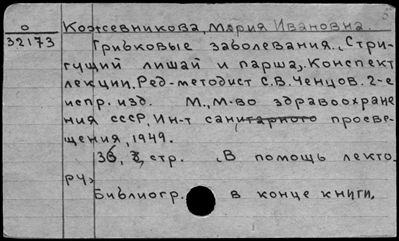 о Кожевникова, Мария Ивановна.
32173 Грибковые заболевания. (Стри-
гущий лишай и парша). Конспект
лекции. Ред-методист С.В. Ченцов. 2-е
испр. изд. М., М-во здравоохране
ния СССР, Ин-т санитарного просве-
щения, 1949.
36, стр. (В помощь лекто-
ру)
Библиогр. в конце книги.